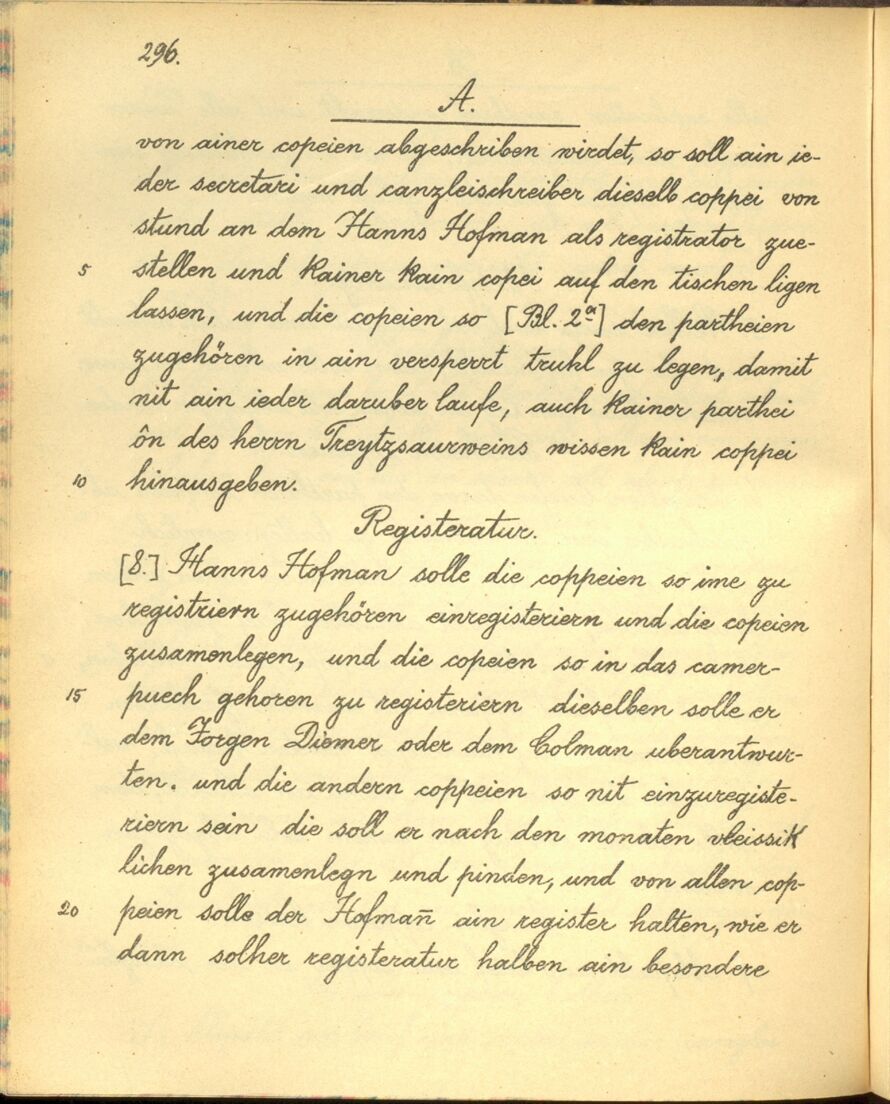 296.
A.
von ainer copeien abgeschriben wirdet, so soll ain ie-
der secretari und canzleischreiber dieselb coppei von
stund an dem Hanns Hofman als registrator zue-
5 stellen und kainer kain copei auf den tischen ligen
lassen, und die copeien so [Bl. 2a] den partheien
zugehören in ain versperrt truhl zu legen, damit
nit ain ieder daruber laufe, auch kainer parthei
ôn des herrn Treytzsaurweins wissen kain coppei
10 hinausgeben.
Registeratur.
[8.] Hanns Hofman solle die coppeien so ime zu
registriern zugehören einregisteriern und die copeien
zusamenlegen, und die copeien so in das camer-
15 puech gehoren zu registeriern dieselben solle er
dem Jorgen Diemer oder dem Colman uberantwur-
ten. und die andern coppeien so nit einzuregiste-
riern sein die soll er nach den monaten vleissik
lichen zusamenlegn und pinden, und von allen cop-
20 peien solle der Hofmañ ain register halten, wie er
dann solher registeratur halben ain besondere